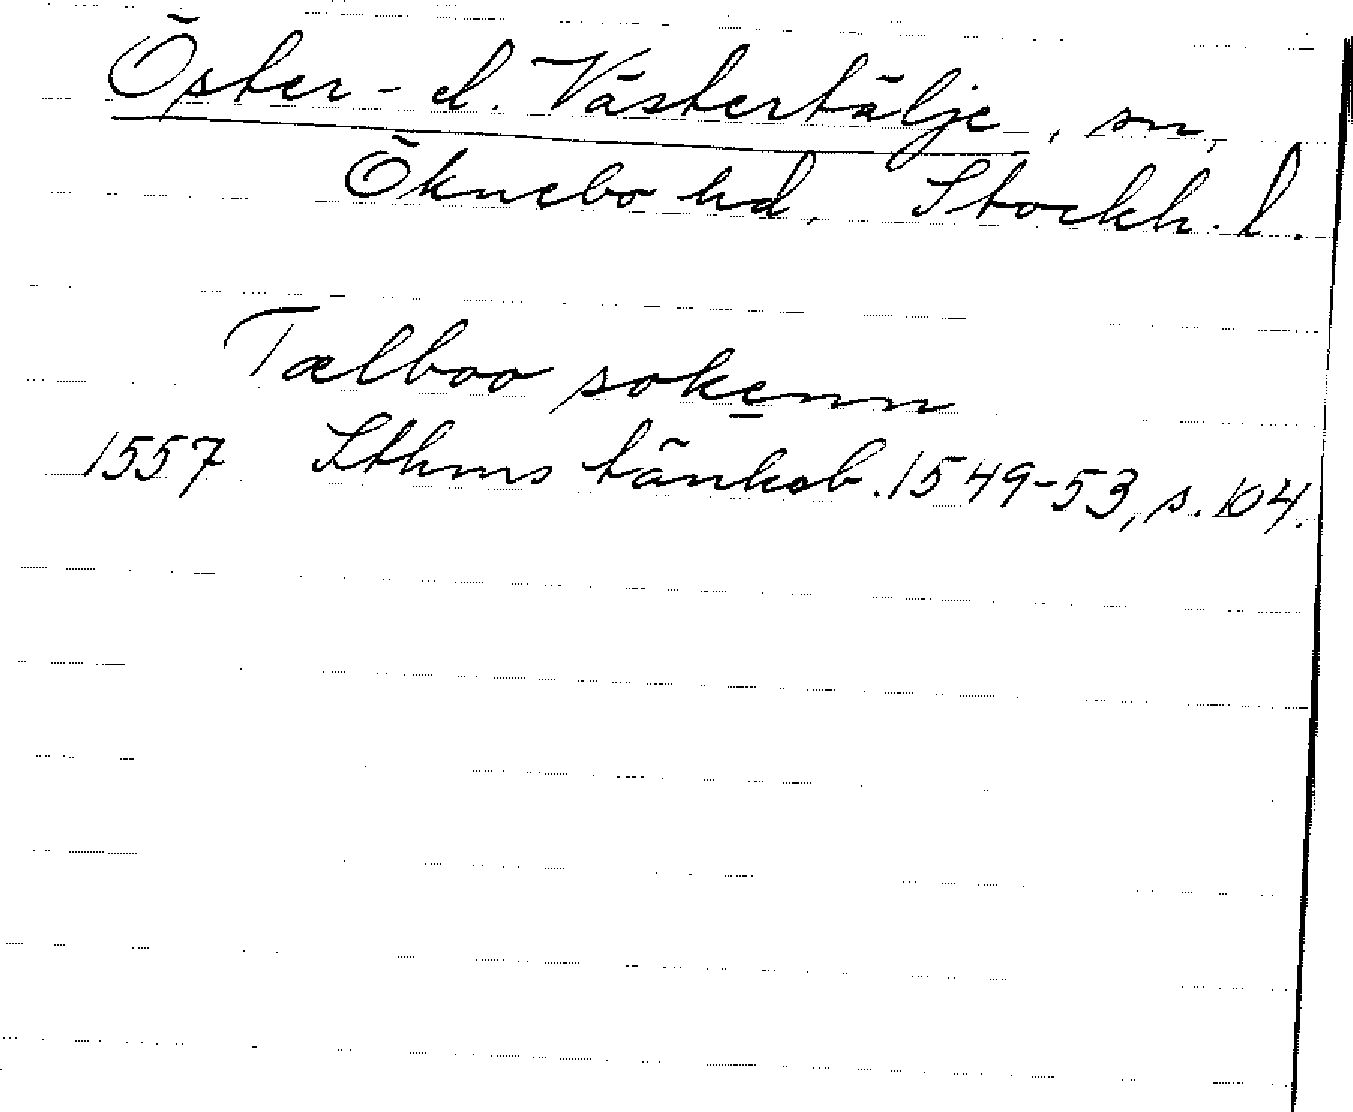 Öster- el. Västertälje, sn,
Öknebo hd, Stockh. l.
Tælboo sokenn
1557 Sthms tänkeb. 1549-53, s. 104.